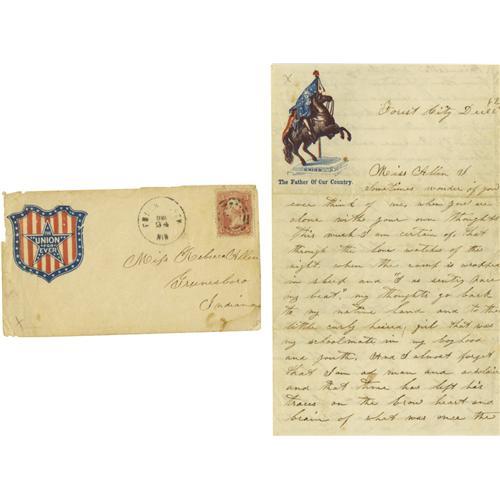 UNION
FOR
EVER
Miss Rebecca Allen
Greensboro
Indiana
Forest City Dec 6
62
The Father Of Our Country.
Miss Allen I
Sometimes wonder if you
ever think of me, when you are
alone with your own thoughts
This much I am certain of, that
through the lone watches of
the night, when the camp is wrapped
in sleep and I as sentry pace
my beat, my thoughts go back
to my native land and to the
little curly haired girl that was
my schoolmate in my boyhood
and youth. And I almost forget
that I am a man and a soldier
and that time has left his
traces on the brow heart and
brain of what was once the